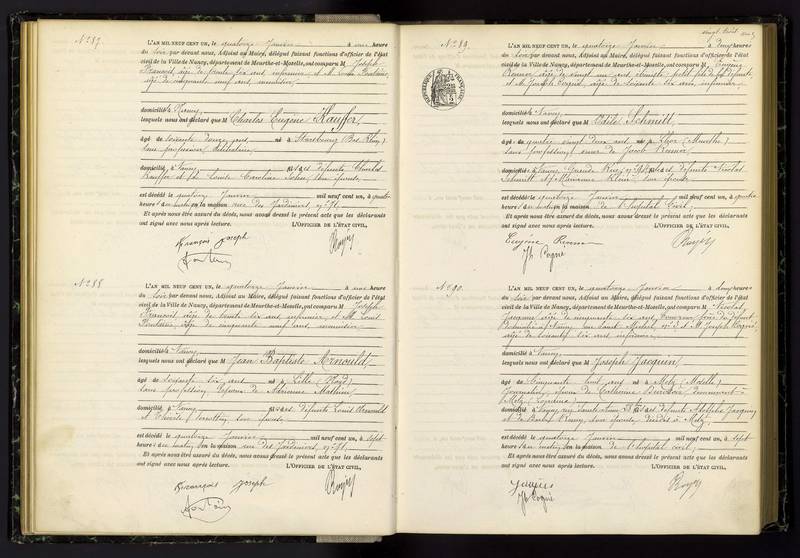 N° 87.
L'AN MIL NEUF CENT UN, le quatorze Janvier à une heure
du soir par devant nous, Adjoint au Maire, délégué faisant fonctions d'officier de l'état
civil de la Ville de Nancy, département de Meurthe-et-Moselle, ont comparu M Joseph
François, âgé de trente six ans infirmier et M. Louis
âgé de cinquante neuf ans
domicilié à Nancy
lesquels nous ont déclaré que M Charles Eugène Kauffer
âgé de soixante douze ans né à Strasbourg (Bas Rhin)
sans profession, célibataire
domicilié à Nancy fils des défunts Charles
Kauffer et Louise Caroline son épouse
est décédé le quatorze Janvier mil neuf cent un, à quatre
heures du matin en la maison rue des Jardiniers, n° 71.
Et après nous être assuré du décès, nous avons dressé le présent acte que les déclarants
ont signé avec nous après lecture. L'OFFICIER DE L'ÉTAT CIVIL,
François Joseph
N° 88
L'AN MIL NEUF CENT UN, le quatorze Janvier à une heure
du soir par devant nous, Adjoint au Maire, délégué faisant fonctions d'officier de l'état
civil de la Ville de Nancy, département de Meurthe-et-Moselle, ont comparu M Joseph
François, âgé de trente six ans infirmier et M. Louis
âgé de cinquante neuf ans
domicilié à Nancy
lesquels nous ont déclaré que M Jean Baptiste Arnould
âgé de soixante six ans né à Lille (Nord)
sans profession, époux de Marianne Mathieu
domicilié à Nancy fils des défunts Louis Arnould
et Thérèse son épouse
est décédé le quatorze Janvier mil neuf cent un, à sept
heures du matin, en la maison rue des Jardiniers, n° 71.
Et après nous être assuré du décès, nous avons dressé le présent acte que les déclarants
ont signé avec nous après lecture. L'OFFICIER DE L'ÉTAT CIVIL,
François Joseph
N° 89.
L'AN MIL NEUF CENT UN, le quatorze Janvier à deux heures
du soir par devant nous, Adjoint au Maire, délégué faisant fonctions d'officier de l'état
civil de la Ville de Nancy, département de Meurthe-et-Moselle, ont comparu M Eugène
âgé de vingt un ans petit fils de la défunte
et M. Joseph Cogné, âgé de soixante six ans infirmier
domiciliés à Nancy
lesquels nous ont déclaré que M Odile Schmitt
âgé de quatre vingt deux ans né à (Meurthe)
sans profession, veuve de Jacob
domiciliée à Nancy, Grande Rue, fille des défunts Nicolas
Schmitt et Marianne Klein son épouse
est décédé le quatorze Janvier mil neuf cent un, à quatre
heures du matin en la maison de l'hôpital Civil,
Et après nous être assuré du décès, nous avons dressé le présent acte que les déclarants
ont signé avec nous après lecture. L'OFFICIER DE L'ÉTAT CIVIL,
Eugène
Jh Cogné
N° 90.
L'AN MIL NEUF CENT UN, le quatorze Janvier à deux heures
du soir par devant nous, Adjoint au Maire, délégué faisant fonctions d'officier de l'état
civil de la Ville de Nancy, département de Meurthe-et-Moselle, ont comparu M Nicolas
Jacquin, âgé de cinquante six ans frère du défunt
domicilié à Nancy rue Saint Michel, et M. Joseph Cogné,
âgé de soixante six ans infirmier
domicilié à Nancy
lesquels nous ont déclaré que M Joseph Jacquin
âgé de cinquante huit ans né à Metz (Moselle)
Journalier, époux de Catherine demeurant à
Metz (Lorraine)
domicilié à Nancy, rue fils des défunts Adolphe Jacquin
et de son épouse, décédés à Metz.
est décédé le quatorze Janvier mil neuf cent un, à sept
heures du matin, en la maison de l'hôpital civil,
Et après nous être assuré du décès, nous avons dressé le présent acte que les déclarants
ont signé avec nous après lecture. L'OFFICIER DE L'ÉTAT CIVIL,
Jh Cogné